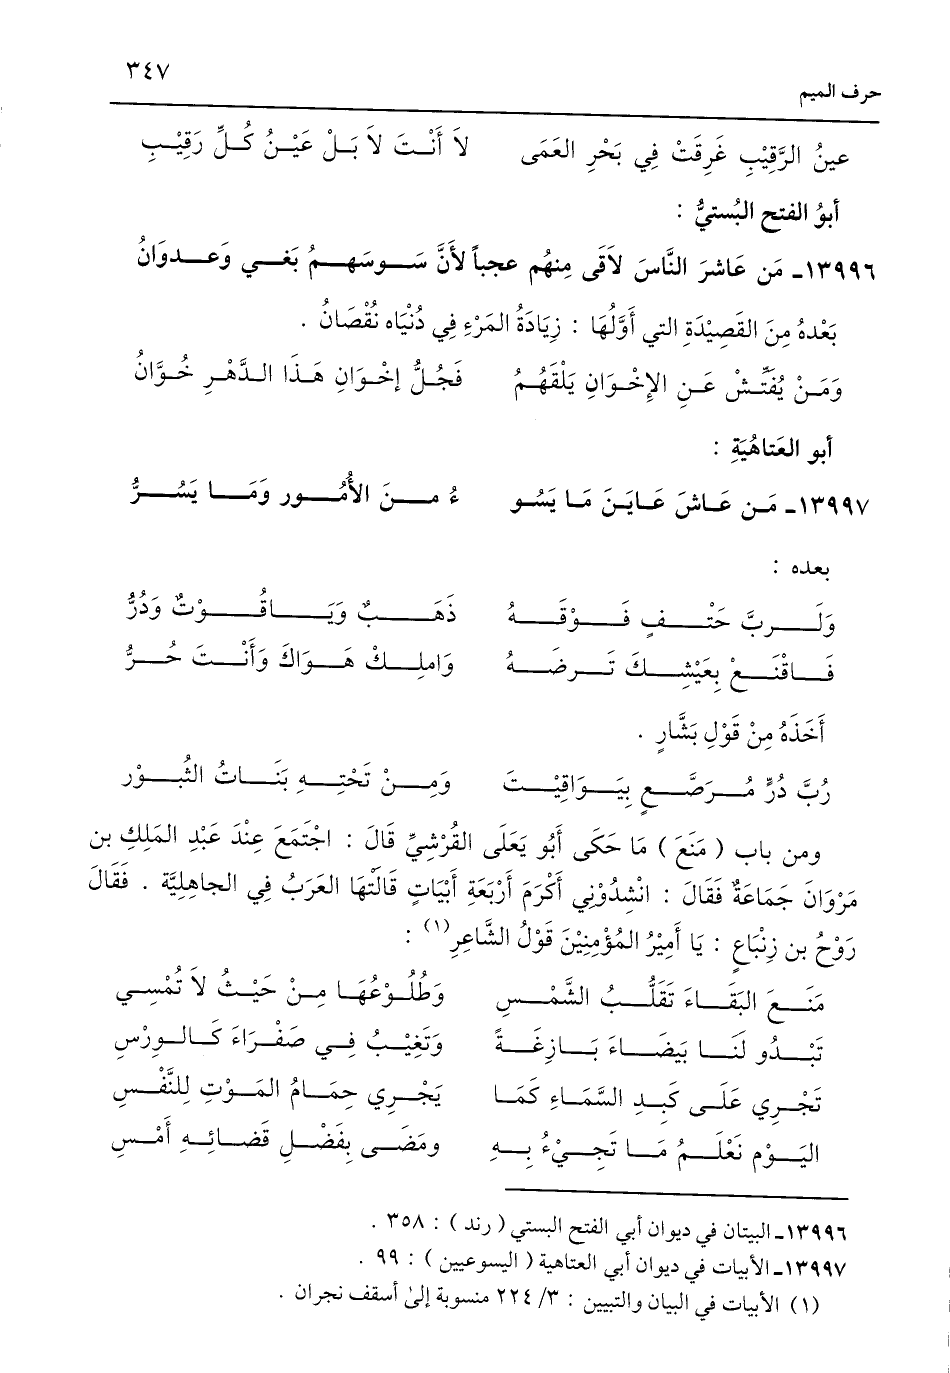 حرف الميم ٣٤٧
عينُ الرَّقِيْبِ غَرِقَتْ فِي بَحْرِ العَمَى لاَ أَنْتَ لاَ بَلْ عَيْنُ كُلِّ رَقِيْبِ
أبوُ الفتح البُستيُّ :
١٣٩٩٦ـ مَن عَاشرَ النَّاسَ لاَقَى مِنهُم عجباً لأَنَّ سَوسَهمُ بَغي وَعدوَانُ
بَعْدهُ مِنَ القَصِيْدَةِ التي أَوَّلُهَا : زِيَادَةُ المَرْءِ فِي دُنْيَاه نُقْصَانُ .
وَمَنْ يُفَتِّشْ عَنِ الإِخْوَانِ يَلْقَهُمُ فَجُلُّ إِخْوَانِ هَذَا الدَّهْرِ خُوَّانُ
أبو العَتاهُيَةِ :
١٣٩٩٧ـ مَن عَاشَ عَايَنَ مَا يَسُو ءُ منَ الأُمُور وَمَا يَسُرُّ
بعده :
وَلَربَّ حَتْفٍ فَوْقَهُ ذَهَبٌ وَيَاقُوْتٌ وَدُرُّ
فَاقْنَعْ بِعَيْشِكَ تَرضَهُ وَاملِكْ هَوَاكَ وَأَنْتَ حُرُّ
أَخَذَهُ مِنْ قَوْلِ بَشَّارٍ .
رُبَّ دُرٍّ مُرَصَّعٍ بِيَوَاقِيْتَ وَمِنْ تَحْتِهِ بَنَاتُ الثُبُوْر
ومن باب ( مَنَعَ ) مَا حَكَى أَبُو يَعَلَى القُرْشِيِّ قَالَ : اجْتَمَعَ عِنْدَ عَبْدِ المَلِكِ بن
مَرْوَانَ جَمَاعَةٌ فَقَالَ : انْشِدُوْنِي أَكْرَمَ أَرْبَعَةِ أَبْيَاتٍ قَالَتْهَا العَرَبُ فِي الجَاهِلِيَّة . فَقَالَ
رَوْحُ بن زِنْبَاعٍ : يَا أَمِيْرُ المُؤْمِنِيْنَ قَوْلُ الشَّاعِرِ(١) :
مَنَعَ البَقَاءَ تَقَلُّبُ الشَّمْسِ وَطُلُوْعُهَا مِنْ حَيْثُ لاَ تُمْسِي
تَبْدُو لَنَا بَيضَاءَ بَازِغَةً وَتَغِيْبُ فِي صَفْرَاءَ كَالوِرْسِ
تَجْرِي عَلَى كَبِدِ السَّمَاءِ كَمَا يَجْرِي حِمَامُ المَوْتِ لِلنَّفْسِ
اليَوْم نَعْلَمُ مَا تَجِيْءُ بِهِ ومَضَى بِفَضْلِ قَضَائِهِ أَمْسِ
١٣٩٩٦ـ البيتان في ديوان أبي الفتح البستي ( رند ) : ٣٥٨ .
١٣٩٩٧ـ الأبيات في ديوان أبي العتاهية ( اليسوعيين ) : ٩٩ .
(١) الأبيات في البيان والتبيين : ٣/ ٢٢٤ منسوبة إلىٰ أسقف نجران .